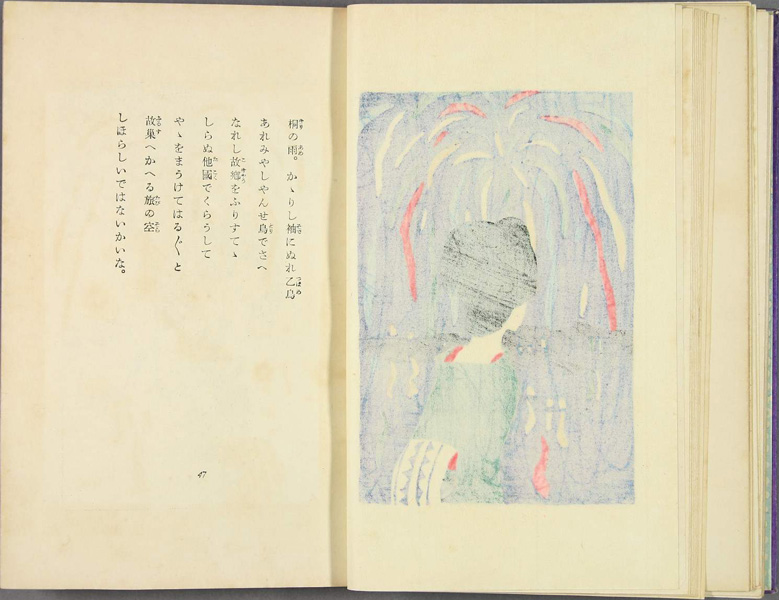 桐の雨。かゝりし袖にぬれ乙鳥
あれみやしやんせ鳥でさへ
なれし故郷をふりすてゝ
しらぬ他國でくらうして
やゝをまうけてはる〴〵と
故巣へかへる旅の空
しほらしいではないかいな。
47